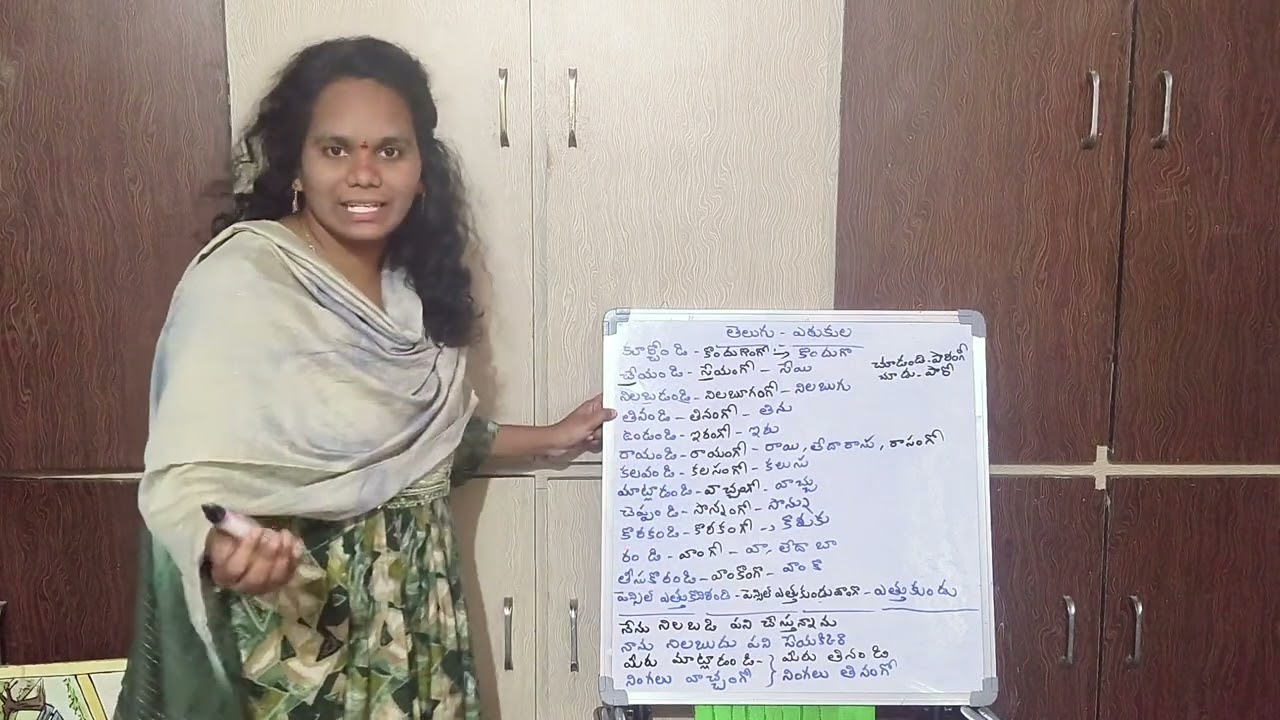 తెలుగు - ఎరుకుల
కూర్చోండి - కొందుగాంగో → కొందుగా
చేయండి - సేయంగో - సేయి
చూడండి - పారంగో
చూడు - పారో
నిలబడండి - నిలబూగంగో - నిలబుగు
తినండి - తినంగో - తిను
ఉండండి - ఇరంగో - ఇరు
రాయండి - రాయంగో - రాయి, లేదా రాసు, రాసంగో
కలవండి - కలసంగో - కలుసు
మాట్లాడండి - వాచ్చంగో - వాచ్చు
చెప్పండి - సొన్నంగో - సొన్ను
కొరకండి - కొరకంగో → కొరుకు
రండి - వాంగో - వా, లేదా బా
తీసుకోరండి - వాంకొంగొ - వాంకొ
పెన్సిల్ ఎత్తుకొండి - పెన్సిల్ ఎత్తుకుండు - ఎత్తుకుండు
నేను నిలబడి పని చేస్తున్నాను
నాను నిలబుదు పని సేయకిడి
మీరు మాట్లాడండి - } మీరు తినండి
నింగలు వాచ్చంగో } నింగలు తినంగో